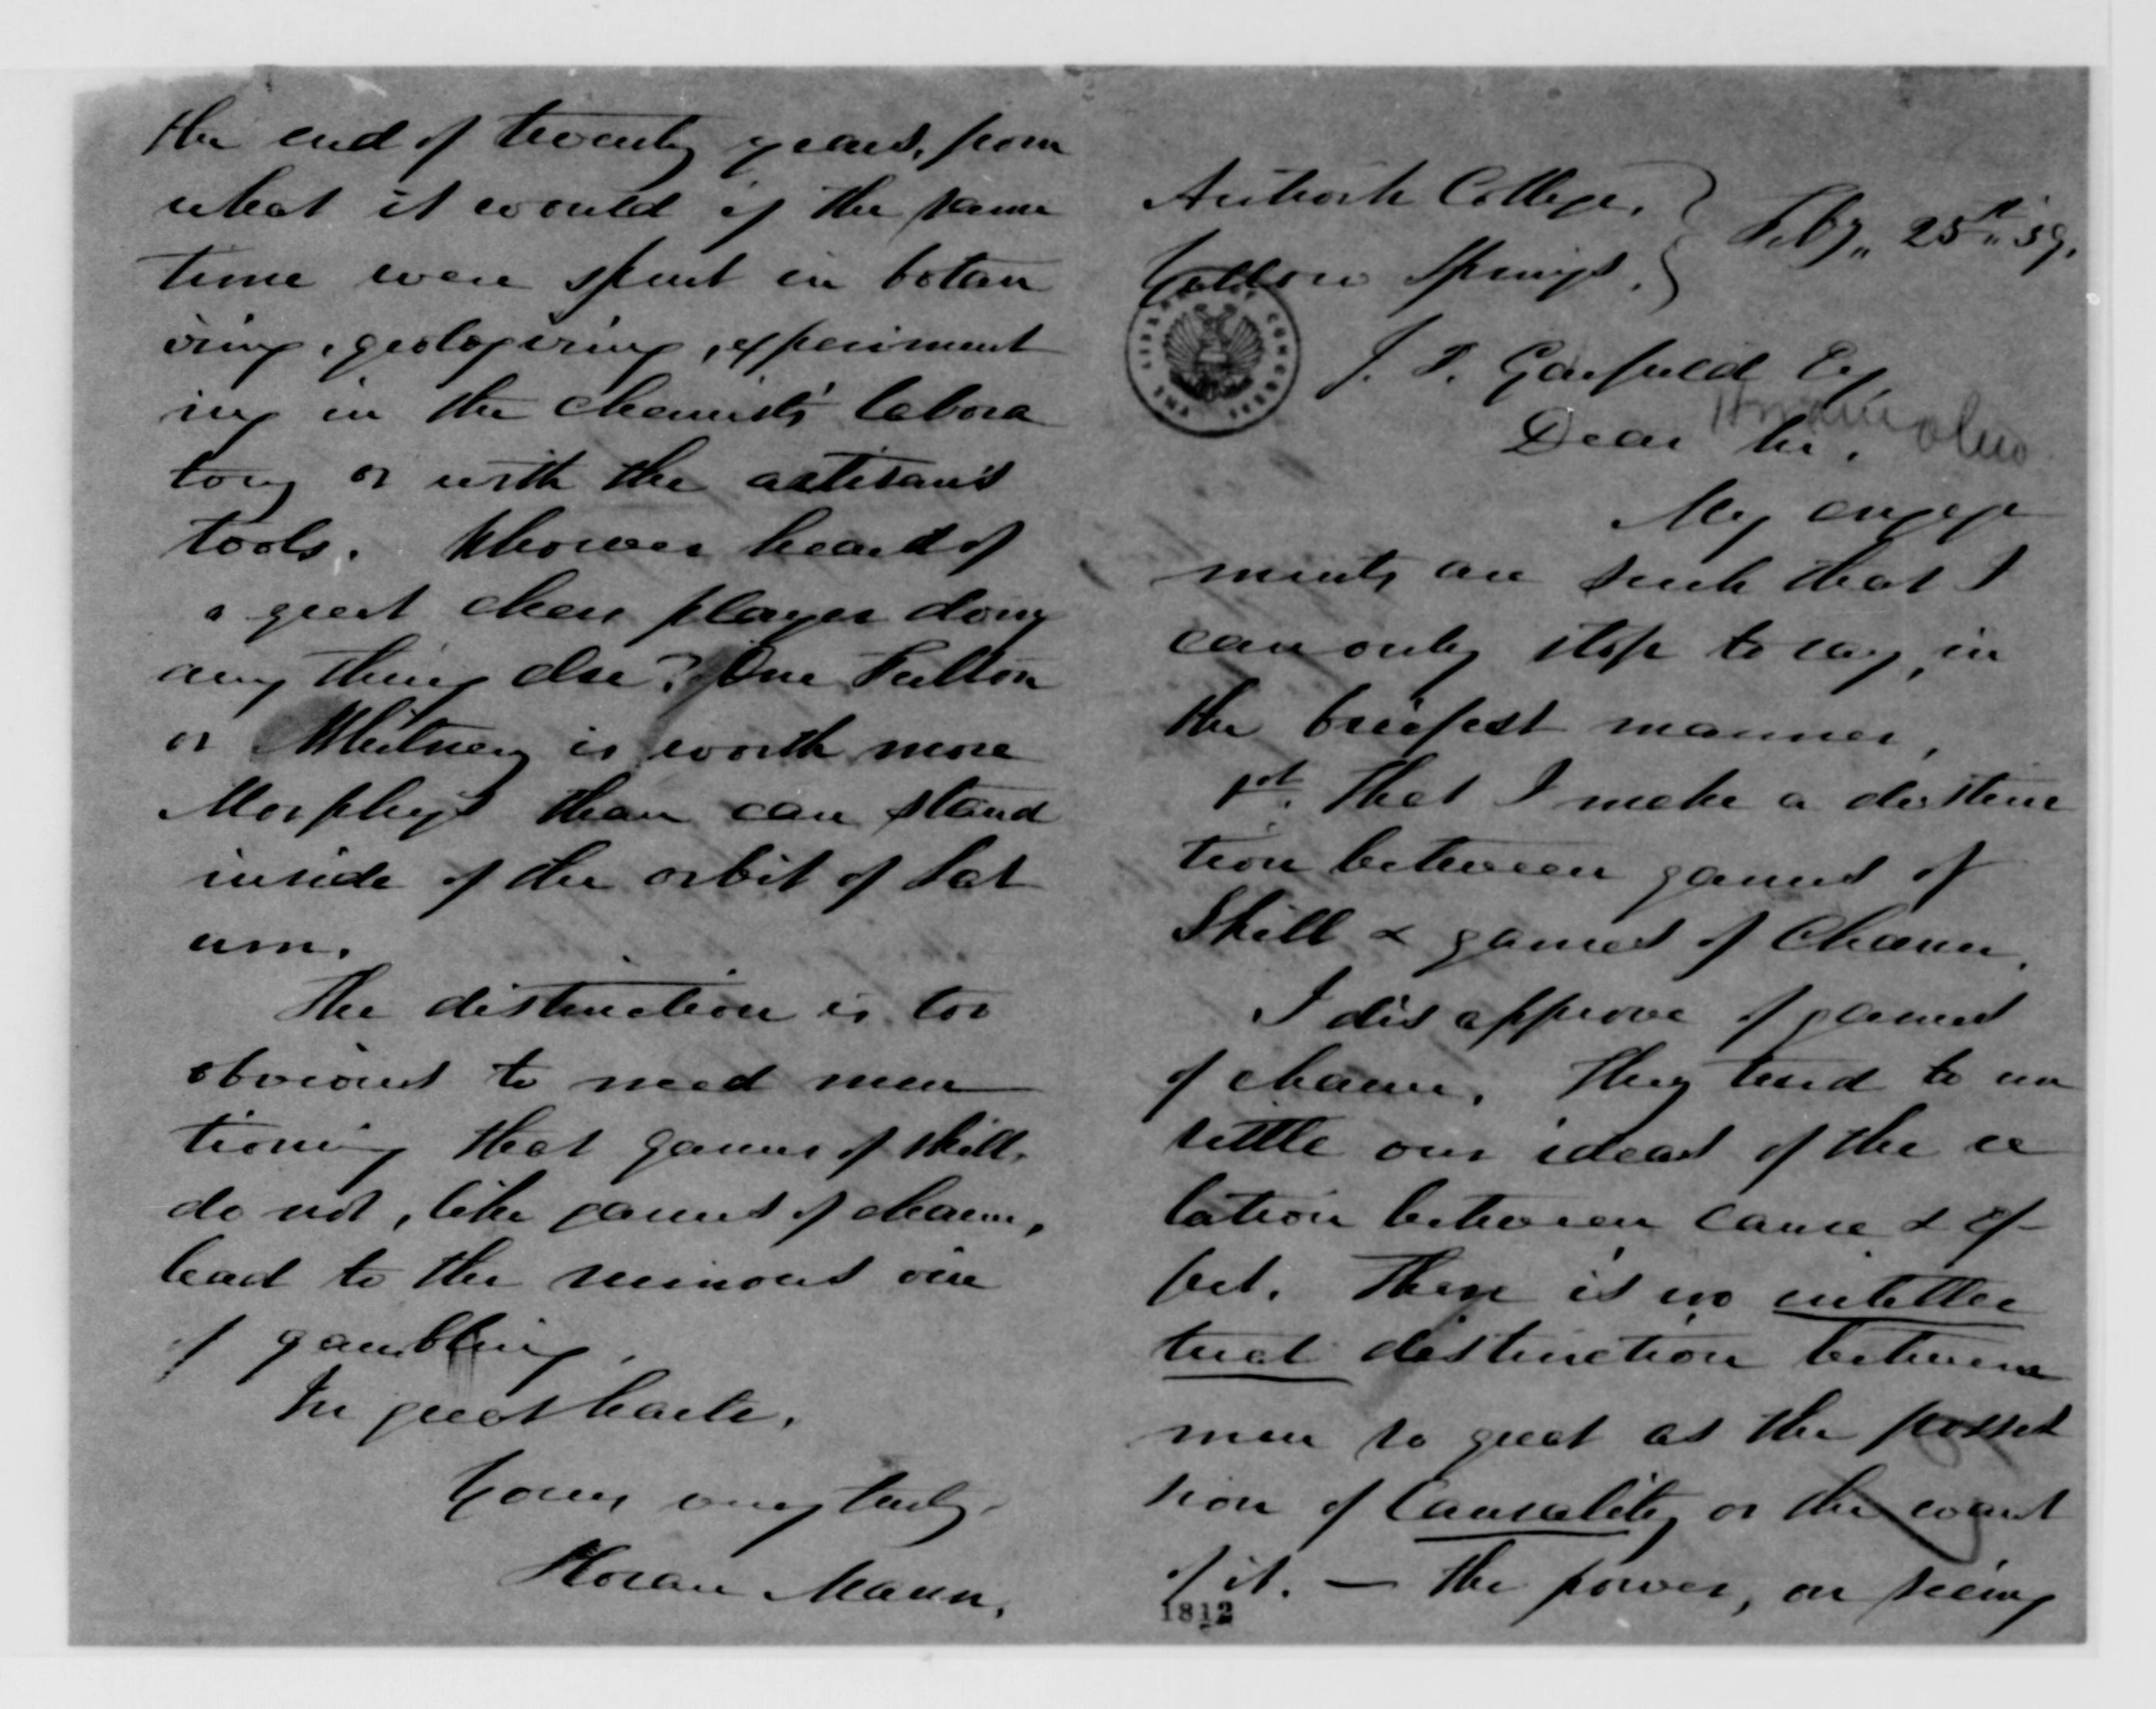 Antioch College,
Yellow Springs.
Feby. 25th '59.
THE LIBRARY OF CONGRESS
J. A. Garfield Esq
Hiram Ohio
Dear Sir,
My engage
ments are such that I
can only stop to say, in
the briefest manner,
1st. That I make a distinc
tion between games of
Skill & games of Chance.
I disapprove of games
of chance. They tend to un
settle our ideas of the re
lation between cause & ef-
fect. There is no intellec
tual distinction between
men so great as the posses
sion of Causality or the want
of it. — The power, on seeing
1812
the end of twenty years, from
what it would if the same
time were spent in botan
izing, geologizing, experiment
ing in the chemist's labora
tory or with the artisan's
tools. Whoever heard of
a great chess player doing
any thing else? One Fulton
or Whitney is worth more
Morphys than can stand
inside of the orbit of Sat
urn.
The distinction is too
obvious to need men
tioning that games of skill,
do not, like games of chance,
lead to the ruinous vice
of gambling.
In great haste,
Yours very truly,
Horace Mann.